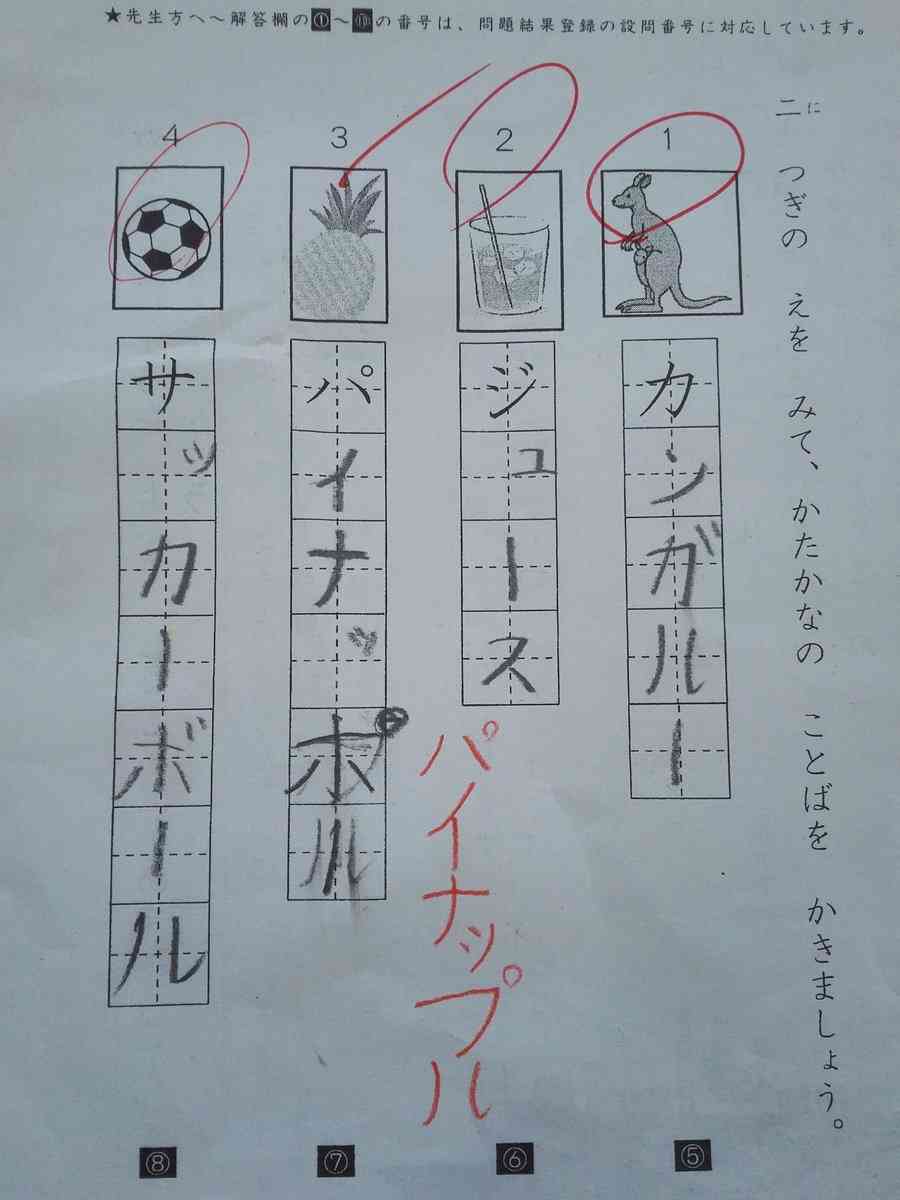 ★先生方へ～解答欄の①～⑪の番号は、問題結果登録の設問番号に対応しています。
二 に つぎの えを みて、かたかなの ことばを かきましょう。
1
カンガルー
⑤
2
ジュース
⑥
パイナップル
3
パイナッポル
⑦
4
サッカーボール
⑧